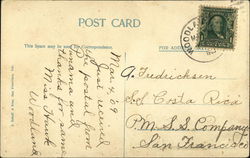 POST CARD
This Space may be used for Correspondence.
FOR ADD
WOODLA
Mar 4, 09
Just received
the postal from
Panama and
thanks for same
Miss Hawk
Woodland
A. Fredricksen
Str Costa Rica
P. M. S. S. Company
San Francisco